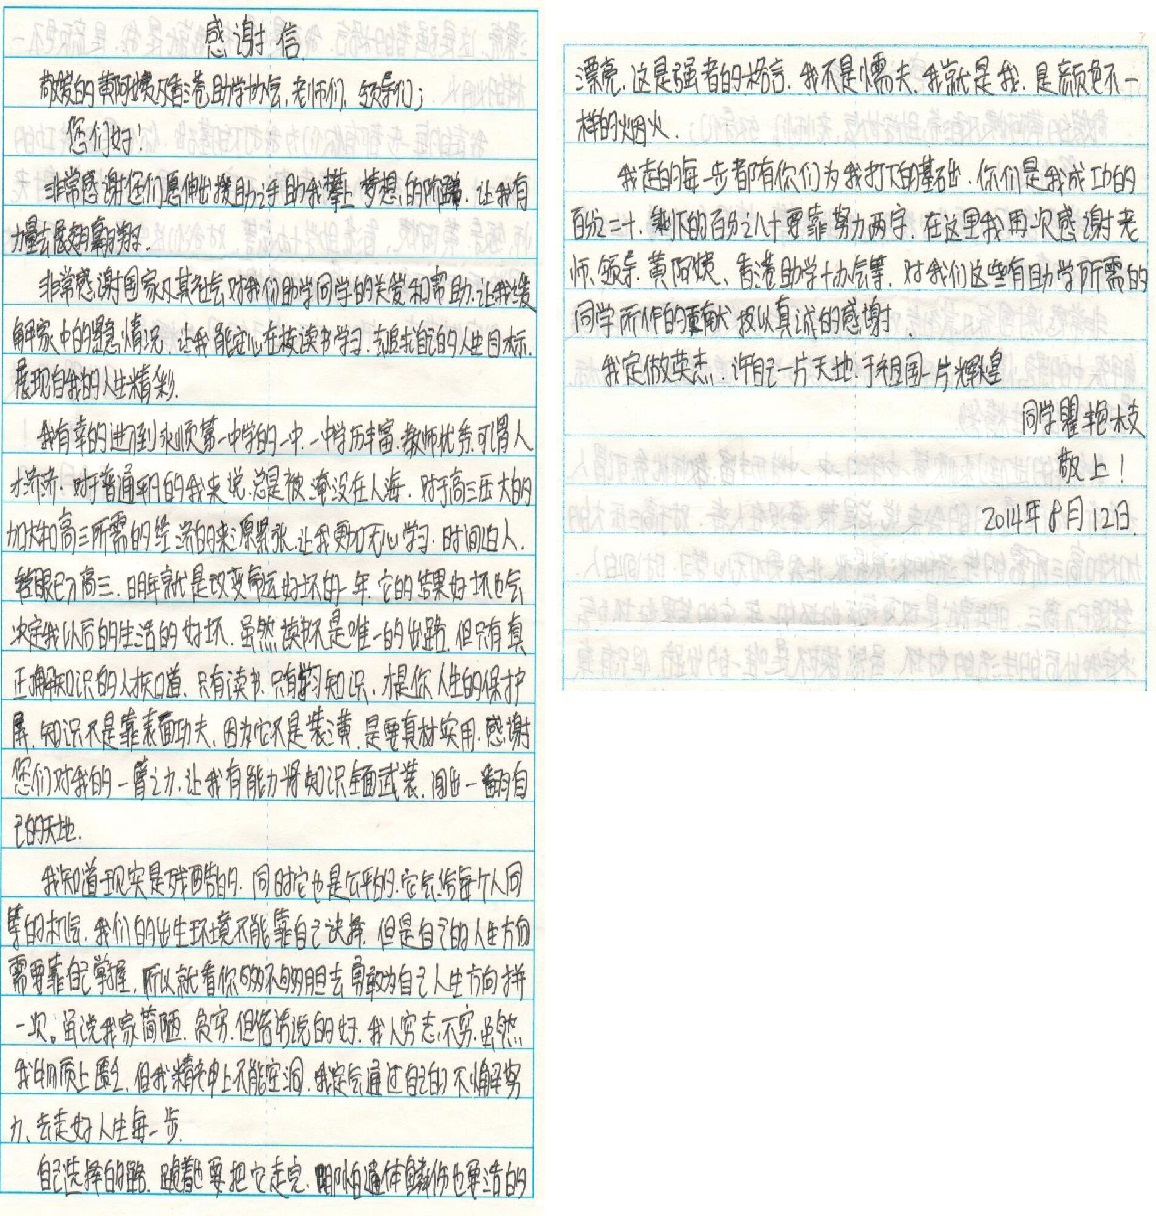 感谢信
敬爱的黄阿姨及香港助学协会,老师们,领导们;
您们好!
非常感谢您们愿伸出援助之手助我攀上梦想的阶梯.让我有
力量去展翅翱翔.
非常感谢国家及其社会对我们助学同学的关爱和帮助.让我缓
解家中的窘急情况,让我能安心在校读书学习.去追求自己的人生目标.
展现自我的人生精彩.
我有幸的进到永顺第一中学的一中.一中学历丰富.教师优秀.可谓人
才济济.对于普通平凡的我来说.总是被淹没在人海.对于高三压大的
加大和高三所需的生活的来源紧张.让我更加无心学习.时间迫人.
转眼已为高三.明年就是改变命运好坏的一年.它的结果好坏也会
决定我以后的生活的好坏.虽然读书不是唯一的出路.但只有真
正了解知识的人才知道.只有读书.只有学习知识.才是你人生的保护
屏.知识不是靠表面功夫.因为它不是装潢.是要真材实用.感谢
您们对我的一臂之力.让我有能力将知识全面武装.闯出一翻自
己的天地.
我知道现实是残酷的.同时它也是公平的.它会给每个人同
等的机会.我们的出生环境不能靠自己诀择.但是自己的人生方向
需要靠自己掌握.所以就看你够不够胆去勇敢为自己人生方向拼
一次。虽说我家简陋.贫穷.但俗话说的好.我人穷志不穷.虽然
我物质上匮乏.但我精神上不能空洞.我定会通过自己的不懈努
力、去走好人生每一步.
自己选择的路.跪着也要把它走完.哪怕遍体鳞伤也要活的
漂亮.这是强者的格言.我不是懦夫.我就是我.是颜色不一
样的烟火.
我走的每一步都有你们为我打下的基础.你们是我成功的
百分之二十.剩下的百分之八十要靠努力两字.在这里我再一次感谢老
师、领导、黄阿姨、香港助学协会等.对我们这些有助学所需的
同学所作的贡献.报以真诚的感谢.
我定做英杰.许自己一片天地.于祖国一片辉煌
同学瞿艳枝
敬上!
2014年8月12日